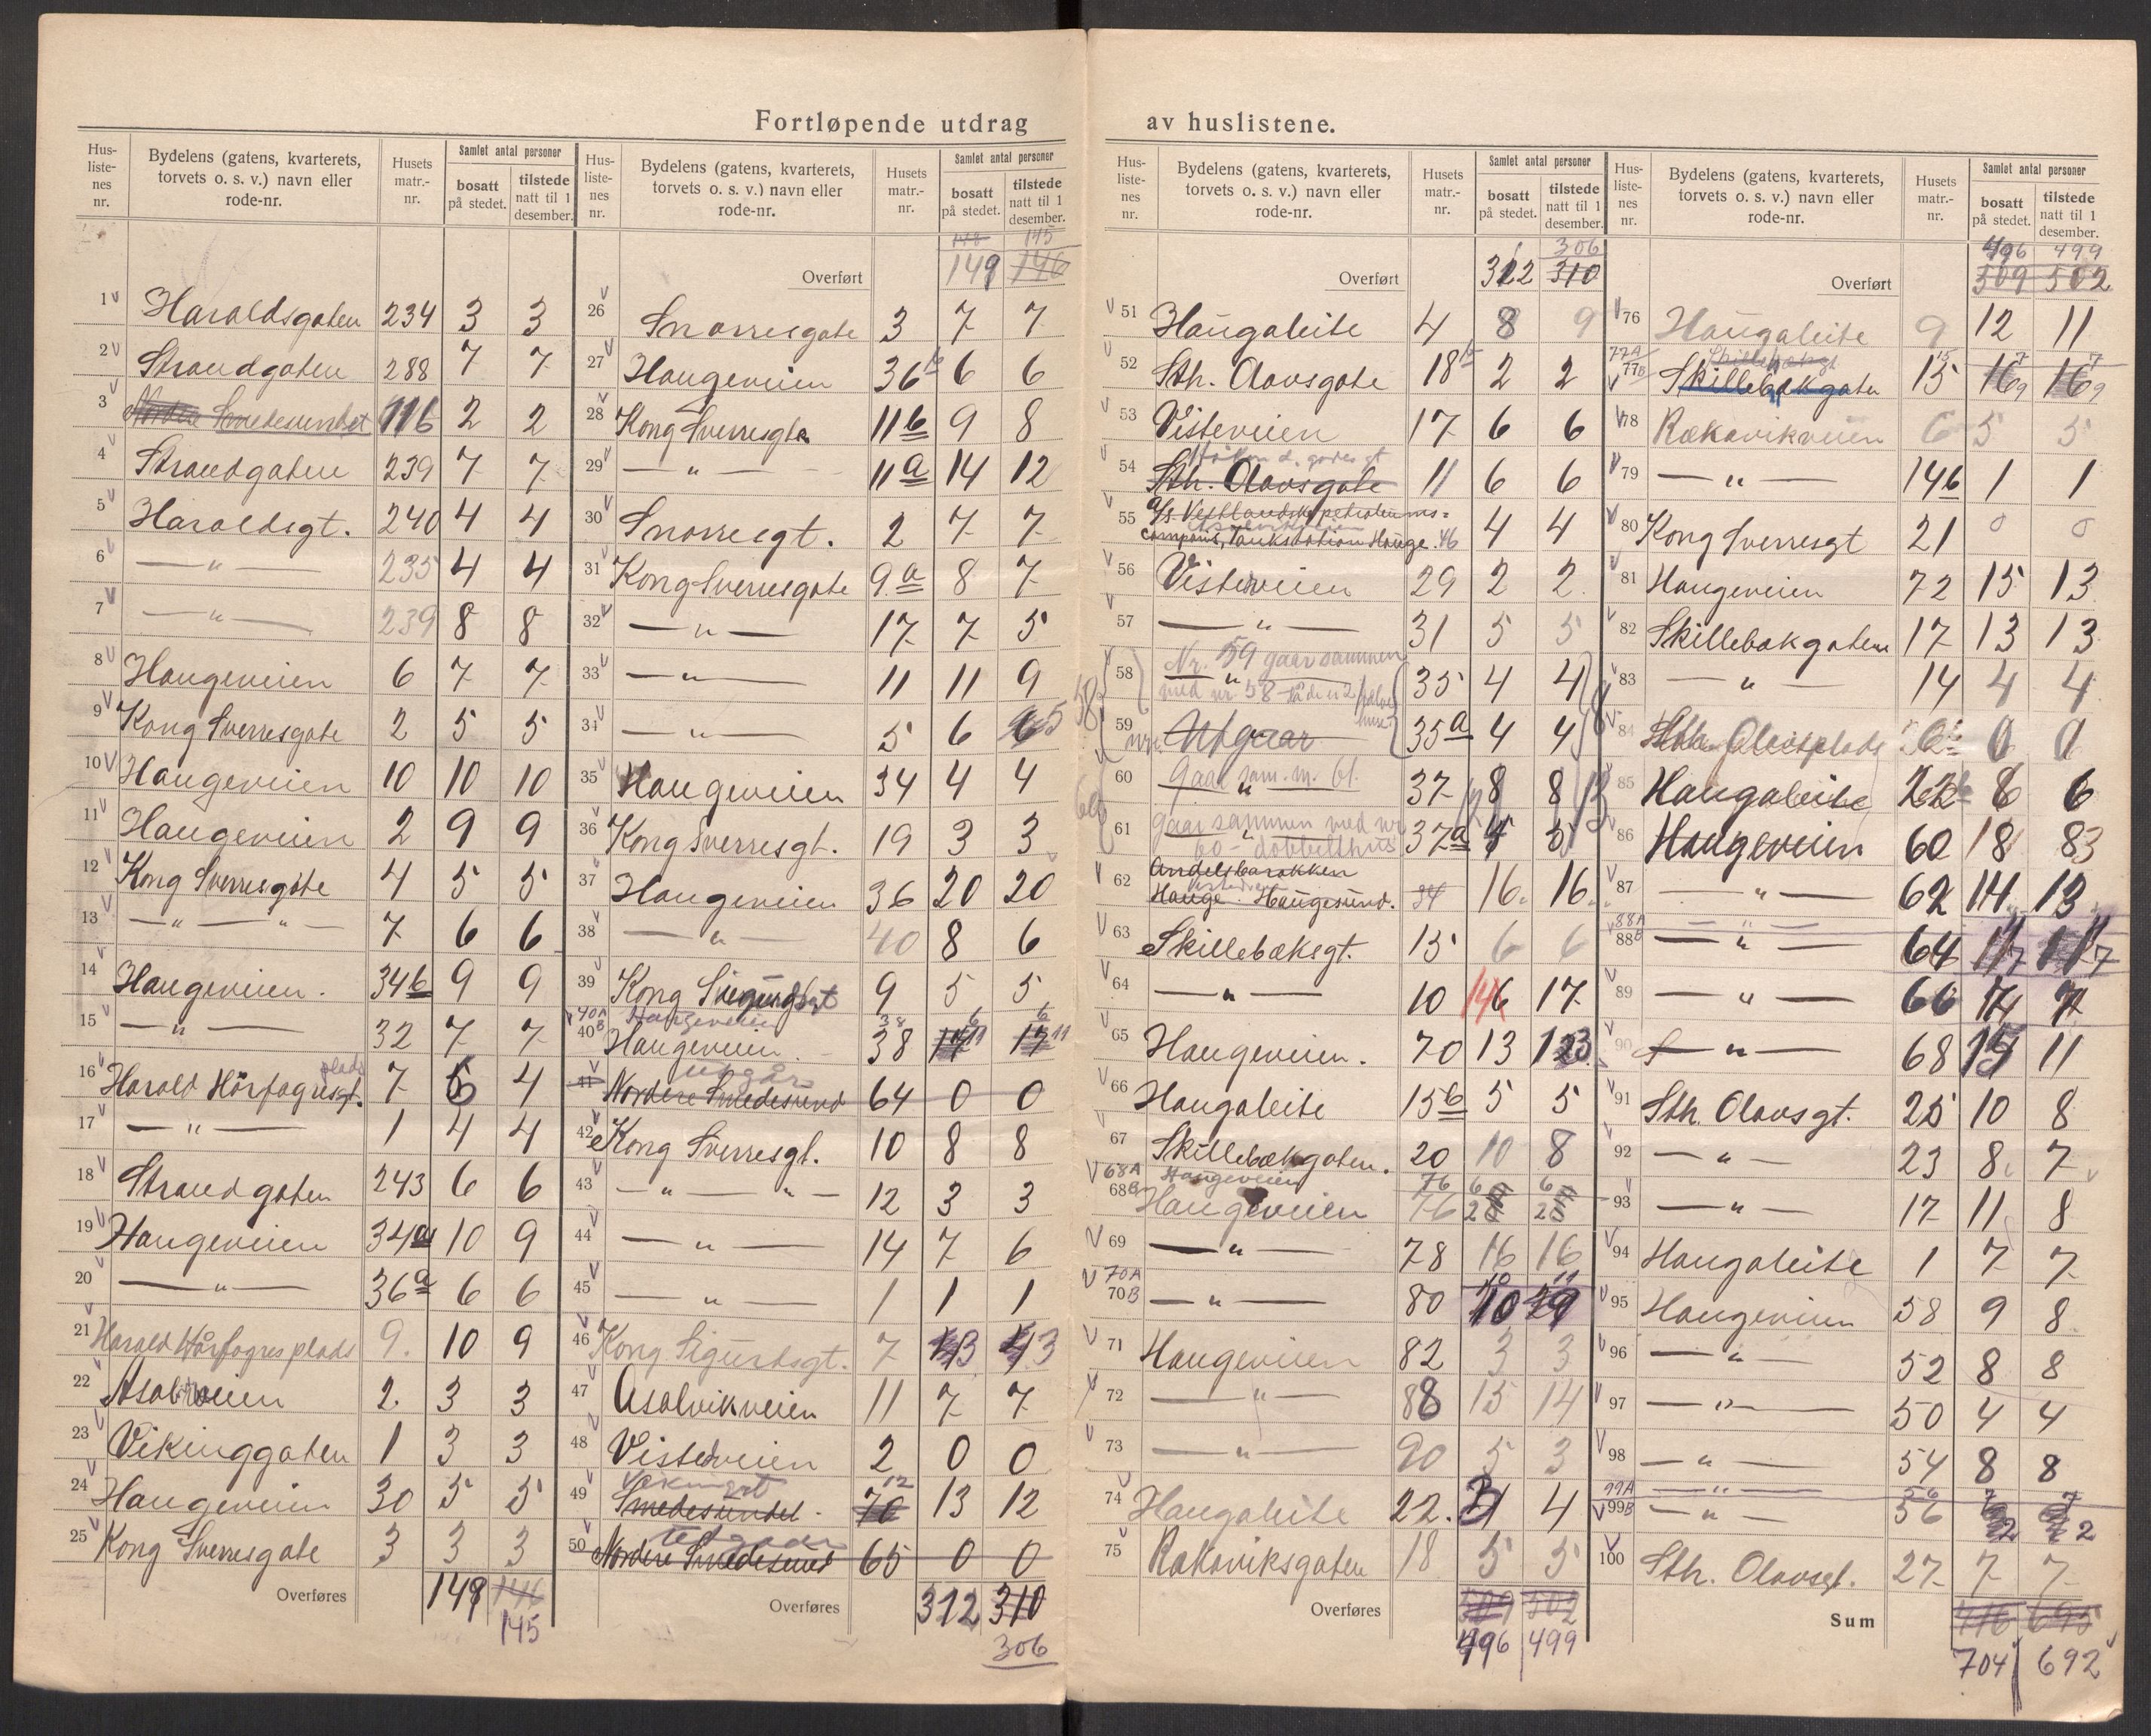 Fortløpende utdrag av huslistene.
Hus-liste-nes nr. | Bydelens (gatens, kvarterets, torvets o. s. v.) navn eller rode-nr. | Husets matr.-nr. | Samlet antal personer bosatt på stedet. | tilstede natt til 1 desember.
1 Haraldsgaten 234 3 3
2 Strandgaten 288 7 7
3 Nordre Smedesundet 116 2 2
4 Strandgaten 239 7 7
5 Haraldsgt. 240 4 4
6 — " — 235 4 4
7 — " — 239 8 8
8 Haugeveien 6 7 7
9 Kong Sverresgate 2 5 5
10 Haugeveien 10 10 10
11 Haugeveien 2 9 9
12 Kong Sverresgate 4 5 5
13 — " — " — 7 6 6
14 Haugeveien. 34b 9 9
15 — " — 32 7 7
16 Harald Hårfagresgt. plads 7 6 4
17 — " — 1 4 4
18 Strandgaten 243 6 6
19 Haugeveien 34a 10 9
20 — " — 36a 6 6
21 Harald Hårfagres plads 9. 10 9
22 2. 3 3
23 Vikinggaten 1 3 3
24 Haugeveien 30 5 5
25 Kong Sverresgate 3 3 3
Overføres 149 146
145
Hus-liste-nes nr. | Bydelens (gatens, kvarterets, torvets o. s. v.) navn eller rode-nr. | Husets matr.-nr. | Samlet antal personer bosatt på stedet. | tilstede natt til 1 desember.
145
Overført 149 146
26 Snorresgate 3 7 7
27 Haugeveien 36b 6 6
28 Kong Sverresgt. 11b 9 8
29 — " — 11a 14 12
30 Snorresgt. 2 7 7
31 Kong Sverresgate 9a 8 7
32 — " — 17 7 5
33 — " — 11 11 9
34 — " — 5 6 5
35 Haugeveien 34 4 4
36 Kong Sverresgt. 19 3 3
37 Haugeveien 36 20 20
38 — " — 40 8 6
39 Kong Sigurdsgt 9 5 5
40A Haugeveien 38 6 6
40B Haugeveien 38 11 11
utgår
41 Nordre Smedesund 64 0 0
42 Kong Sverresgt. 10 8 8
43 — " — " — 12 3 3
44 — " — 14 7 6
45 — " — 1 1 1
46 Kong Sigurdsgt. 7 13 13
47 Asalvikveien 11 7 7
48 Visteveien 2 0 0
Vikinggt 12
49 Smedesundet. 70 13 12
50 Nordre Smedesund 65 0 0
Overføres 312 310
306
Hus-liste-nes nr. | Bydelens (gatens, kvarterets, torvets o. s. v.) navn eller rode-nr. | Husets matr.-nr. | Samlet antal personer bosatt på stedet. | tilstede natt til 1 desember.
306
Overført 312 310
51 Haugaleite 4 8 9
52 Sth. Olavsgate 18b 2 2
53 Visteveien 17 6 6
Håkon d. godes gt
54 Sth. Olavsgate 11 6 6
55 A/s. Vestlandske petroleums= 4 4
compani, Tankstation Hauge. 46
56 Visteveien 29 2 2
57 — " — 31 5 5
58 Nr. 59 gaar sammen — " — 35 4 4
med nr 58 då de er 2 halve huse
59 Utgaar 35a 4 4
60 Gaar sam. m. 61. 37 8 8
61 gaar sammen med nr 60 - dobbelthus 37a 5
62 Andelsbarakken 16. 16.
Hauge. Haugesund. 34
63 Skillebæksgt. 15 6 6
64 — " — 10 16 17
65 Haugeveien. 70 13 13
66 Haugaleite 15b 5 5
67 Skillebækgaten. 20 10 8
68A Haugeveien 76 6 6
68B Haugeveien 76
69 — " — 78 16 16
70A 10 11
70B — " — 80
71 Haugeveien 82 3 3
72 — " — 88 15 14
73 — " — 90 5 3
74 Haugaleite 22. 4
75 Røkeviksgaten 18 5 5
Overføres 509 502
496 499
Hus-liste-nes nr. | Bydelens (gatens, kvarterets, torvets o. s. v.) navn eller rode-nr. | Husets matr.-nr. | Samlet antal personer bosatt på stedet. | tilstede natt til 1 desember.
496 499
Overført 509 502
76 Haugaleite 9 12 11
77A Skillebækgt 15 7 7
77B Skillebækgaten 15 9 9
78 Røkavikveien 6 5 5
79 — " — 14b 1 1
80 Kong Sverresgt 21 0 0
81 Haugeveien 72 15 13
82 Skillebækgaten 17 13 13
83 — " — 14 4 4
84 0 0
85 Haugaleite 22 6 6
86 Haugeveien 60 18
87 — " — 62 14 13
88A — " —
88B — " — 64
89 — " — 66
90 — " — 68 11
91 Sth. Olavsgt. 25 10 8
92 — " — 23 8 7
93 — " — 17 11 8
94 Haugaleite 1 7 7
95 Haugeveien 58 9 8
96 — " — 52 8 8
97 — " — 50 4 4
98 — " — 54 8 8
99A — " — 56 7 7
99B — " — 56 2 2
100 Sth. Olavsgt. 27 7 7
Sum
704 692